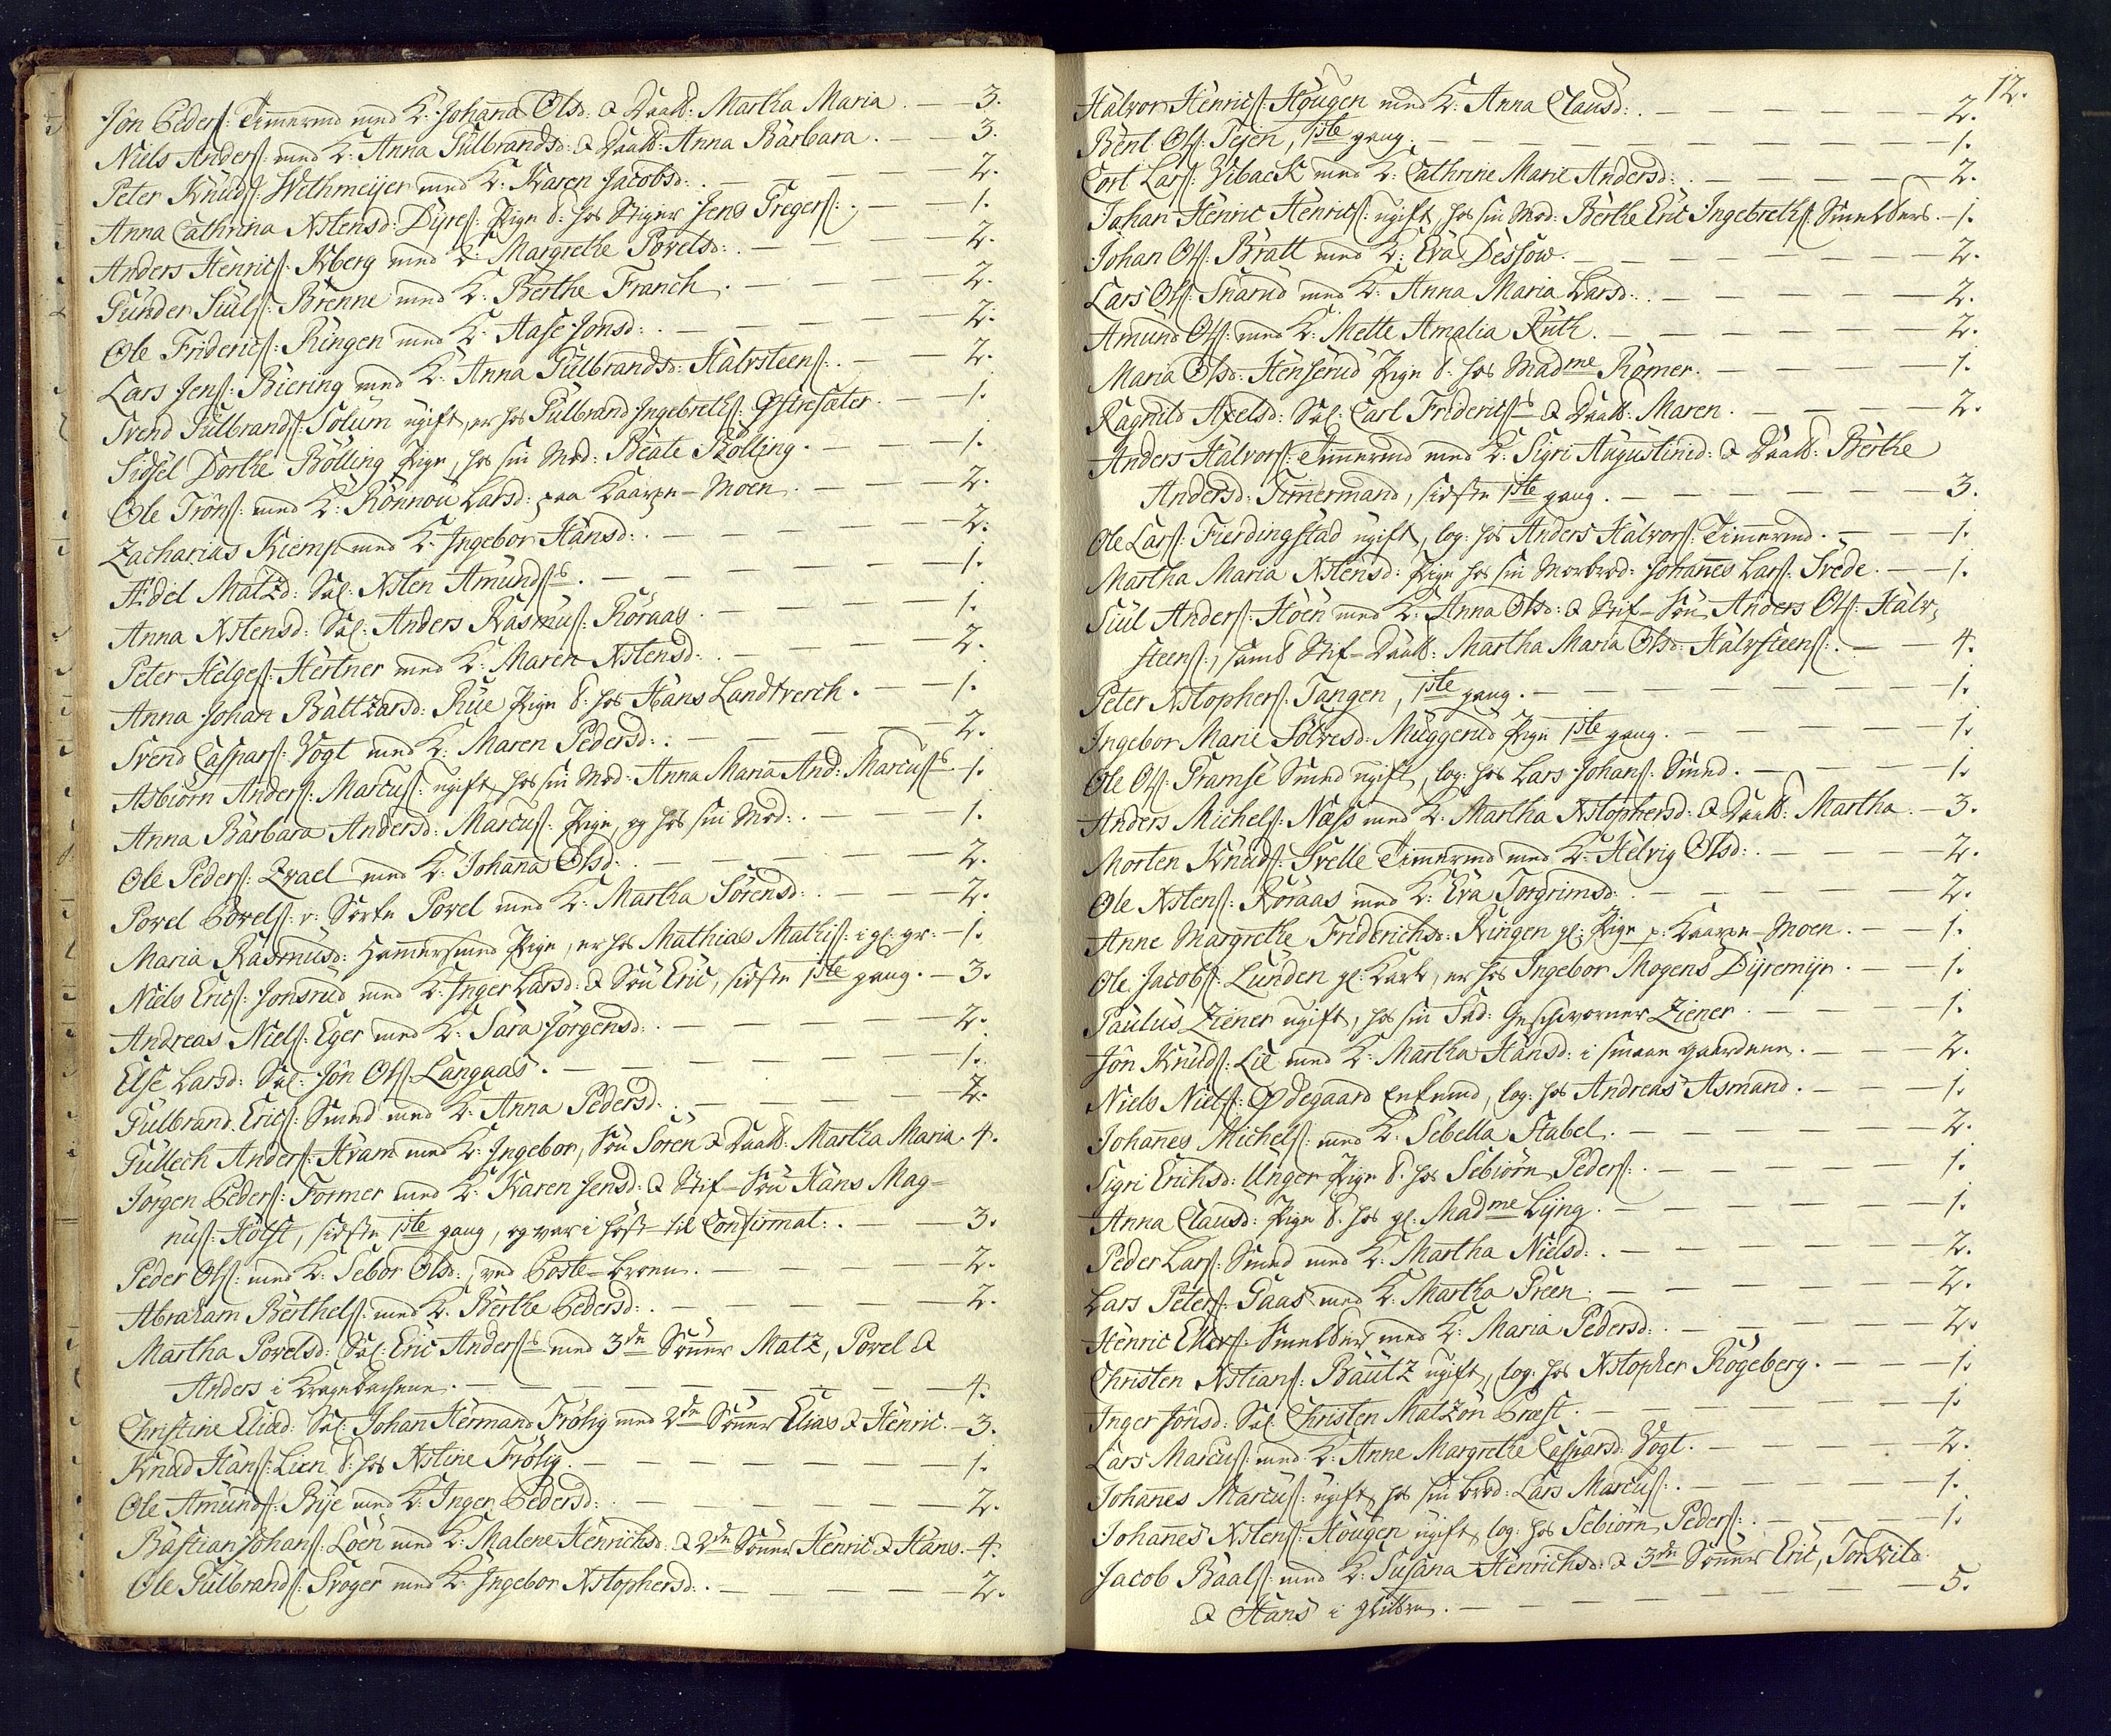 Jŏn Peders: Timermd med K: Johana Olsd: & Daatt: Martha Maria. — 3.
Niels Anders: med K: Anna Gŭlbrandsd: & Daatt: Anna Barbara. — 3.
Peter Knŭds: Wethmeijer med K: Karen Jacobsd: . — 2.
Anna Cathrina Xstensd: Dijres: Pige t: hos Stiger Jens Gregers: . — 1.
Anders Henrics: Kberg med K: Margrethe Povelsd: . — 2.
Gŭnder Siŭls: Brenne med K: Berthe Franch. — 2.
Ole Friderics: Ringen med K: Aase Jonsd: . — 2.
Lars Jens: Biering med K: Anna Gŭlbrandsd: Halvsteens: . — 2.
Svend Gŭlbrands: Solŭm ugift, er hos Gŭlbrand Ingebreths: Østresæter. — 1.
Sidsel Dorthe Bölling Pige, hos sin Mod: Beate Bölling. — 1.
Ole Tröns: med K: Rönnoŭ Larsd: paa Kaarpe-Moen. — 2.
Zacharias Kiemp med K: Ingebor Hansd: . — 2.
Ædel Matzd: Sal: Xsten Amŭnds: . — 1.
Anna Xstensd: Sal: Anders Rasmŭs: Röraas. — 1.
Peter Helges: Hertner med K: Maren Xstensd: . — 2.
Anna Johan Baltzarsd: Rŭe Pige t: hos Hans Landtverch. — 1.
Svend Caspars: Vogt med K: Maren Pedersd: . — 2.
Asbiörn Anders: Marcŭs: ugift, hos sin Mod: Anna Maria And: Marcŭs: — 1.
Anna Barbara Andersd: Marcŭs: Pige, og hos sin Mod: . — 1.
Ole Peders: Qvael med K: Johana Olsd: . — 2.
Povel Povels: v: Sorte Povel med K: Martha Sörensd: . — 2.
Maria Rasmŭsd: Hammersmed Pige, er hos Mathias Mathis: i gl: gr: — 1.
Niels Erics: Jonsrŭd med K: Inger Larsd: & Sön Eric, sidste 1ste gang. — 3.
Andreas Niels: Eger med K: Sara Jörgensd: . — 2.
Else Larsd: Sal: Jŏn Ols: Langaas. — 1.
Gŭlbrand Erics: Smed med K: Anna Pedersd. — 2.
Gŭllech Anders: Hvam med K: Ingebor, Sön Sören & Daatt: Martha Maria. 4.
Jörgen Peders: Former med K: Karen Jensd: & Stif-Sön Hans Mag-
nŭs: Holst, sidste 1ste gang, og var i höst til Confirmat: . — 3.
Peder Ols: med K: Sebor Olsd:, ved Poste-Broen. — 2.
Abraham Berthels: med K: Berthe Pedersd: . — 2.
Martha Povelsd: Sal: Eric Anders: med 3de Sönner Matz, Povel &
Anders i Kragebachene. — 4.
Christine Eliæd: Sal: Johan Hermand Frölig med 2de Sönner Elias & Henric. — 3.
Knŭd Hans: Lien t: hos Xstine Frölig. — 1.
Ole Amŭnds: Bije med K: Inger Pedersd: . — 2.
Bastian Johans: Löen med K: Malene Henrichsd: & 2de Sönner Henric & Hans. 4.
Ole Gŭlbrands: Svoger med K: Ingebor Xstophersd: . — 2.
12.
Halvor Henrics: Hoŭgen med K: Anna Claŭsd: . — 2.
Bent Ols: Tejen, 1ste gang. — 1.
Cort Lars: Viback med K: Cathrine Marie Andersd: . — 2.
Johan Henric Henrics: ugift, hos sin Mod: Berthe Eric Ingebreths: Smelters. — 1.
Johan Ols: Bratt med K: Eva Dessow. — 2.
Lars Ols: Snarŭd med K: Anna Maria Larsd: . — 2.
Amŭnd Ols: med K: Mette Amalia Rŭth. — 2.
Maria Olsd: Henserŭd Pige t: hos Madme Römer. — 1.
Ragnild Axelsd: Sal: Carl Friderics: & Daatt: Maren. — 2.
Anders Halvors: Timermd med K: Sigri Aŭgŭstinid: & Daatt: Berthe
Andersd: Timermand, sidste 1ste gang. — 3.
Ole Lars: Fierdingstad ugift, log: hos Anders Halvors: Timermd. — 1.
Martha Maria Xstensd: Pige hos sin Morbrod: Johanes Lars: Svede. — 1.
Siŭl Anders: Höen med K: Anna Olsd: & Stif-Sön Anders Ols: Halv,
steens:, samt Stif-Daatt: Martha Maria Olsd: Halvsteens: . — 4.
Peter Xstophers: Tangen, 1ste gang. — 1.
Ingebor Marie Solvesd: Mŭggerŭd Pige 1ste gang. — 1.
Ole Ols: Gramse Smed ugift, log: hos Lars Johans: Smed. — 1.
Anders Michels: Næss med K: Martha Xstophersd: & Daatt: Martha. — 3.
Morten Knŭds: Svelle Timermd med K: Helvig Olsd: . — 2.
Ole Xstens: Röraas med K: Eva Torgrimsd: . — 2.
Anne Margrethe Friderichsd: Ringen gl: Pige p: Kaarpe-Moen. — 1.
Ole Jacobs: Lŭnden gl: Karl, er hos Ingebor Mogens Dijremijr. — 1.
Paŭlŭs Ziener ugift, hos sin Fad: Geschworner Ziener. — 1.
Jŏn Knŭds: Lie med K: Martha Hansd: i smaae gaardene. — 2.
Niels Niels: Ødegaard Enkemd, log: hos Andreas Asmand. — 1.
Johanes Michels: med K: Sebella Stabel. — 2.
Sigri Erichsd: Unger Pige t: hos Sebiörn Peders: . — 1.
Anna Claŭsd: Pige t: hos gl: Madme Lijng. — 1.
Peder Lars: Smed med K: Martha Nielsd: . — 2.
Lars Peters: Gaas med K: Martha Green. — 2.
Henric Ellers: Smelter med K: Maria Pedersd: . — 2.
Christen Xstians: Baŭtz ugift, log: hos Xstopher Rogeberg. — 1.
Inger Jŏnsd: Sal: Christen Matzön Præst. — 1.
Lars Marcŭs: med K: Anne Margrethe Caspersd: Vogt. — 2.
Johanes Marcŭs: ugift, hos sin brod: Lars Marcŭs: . — 1.
Johanes Xstens: Hoŭgen ugift, log: hos Sebiörn Peders: . — 1.
Jacob Baals: med K: Sŭsana Henrichsd: & 3de Sönner Eric, Torkild
& Hans i Hŭtten. — 5.